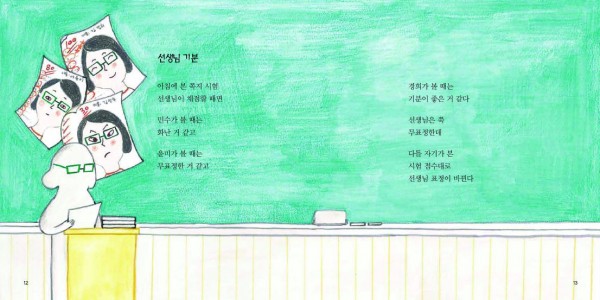 선생님 기분
아침에 본 쪽지 시험
선생님이 채점할 때면
민수가 볼 때는
화난 거 같고
윤미가 볼 때는
무표정한 거 같고
경희가 볼 때는
기분이 좋은 거 같다
선생님은 쭉
무표정한데
다들 자기가 본
시험 점수대로
선생님 표정이 바뀐다
100
80
30
12
13